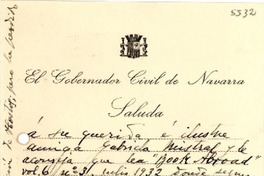 5532
El Gobernador Civil de Navarra
Saluda
á su querida é ilustre
amiga Gabriela Mistral y le
aconseja que lea "Book Abroad"
vol. 6 nº 3, julio 1932 donde